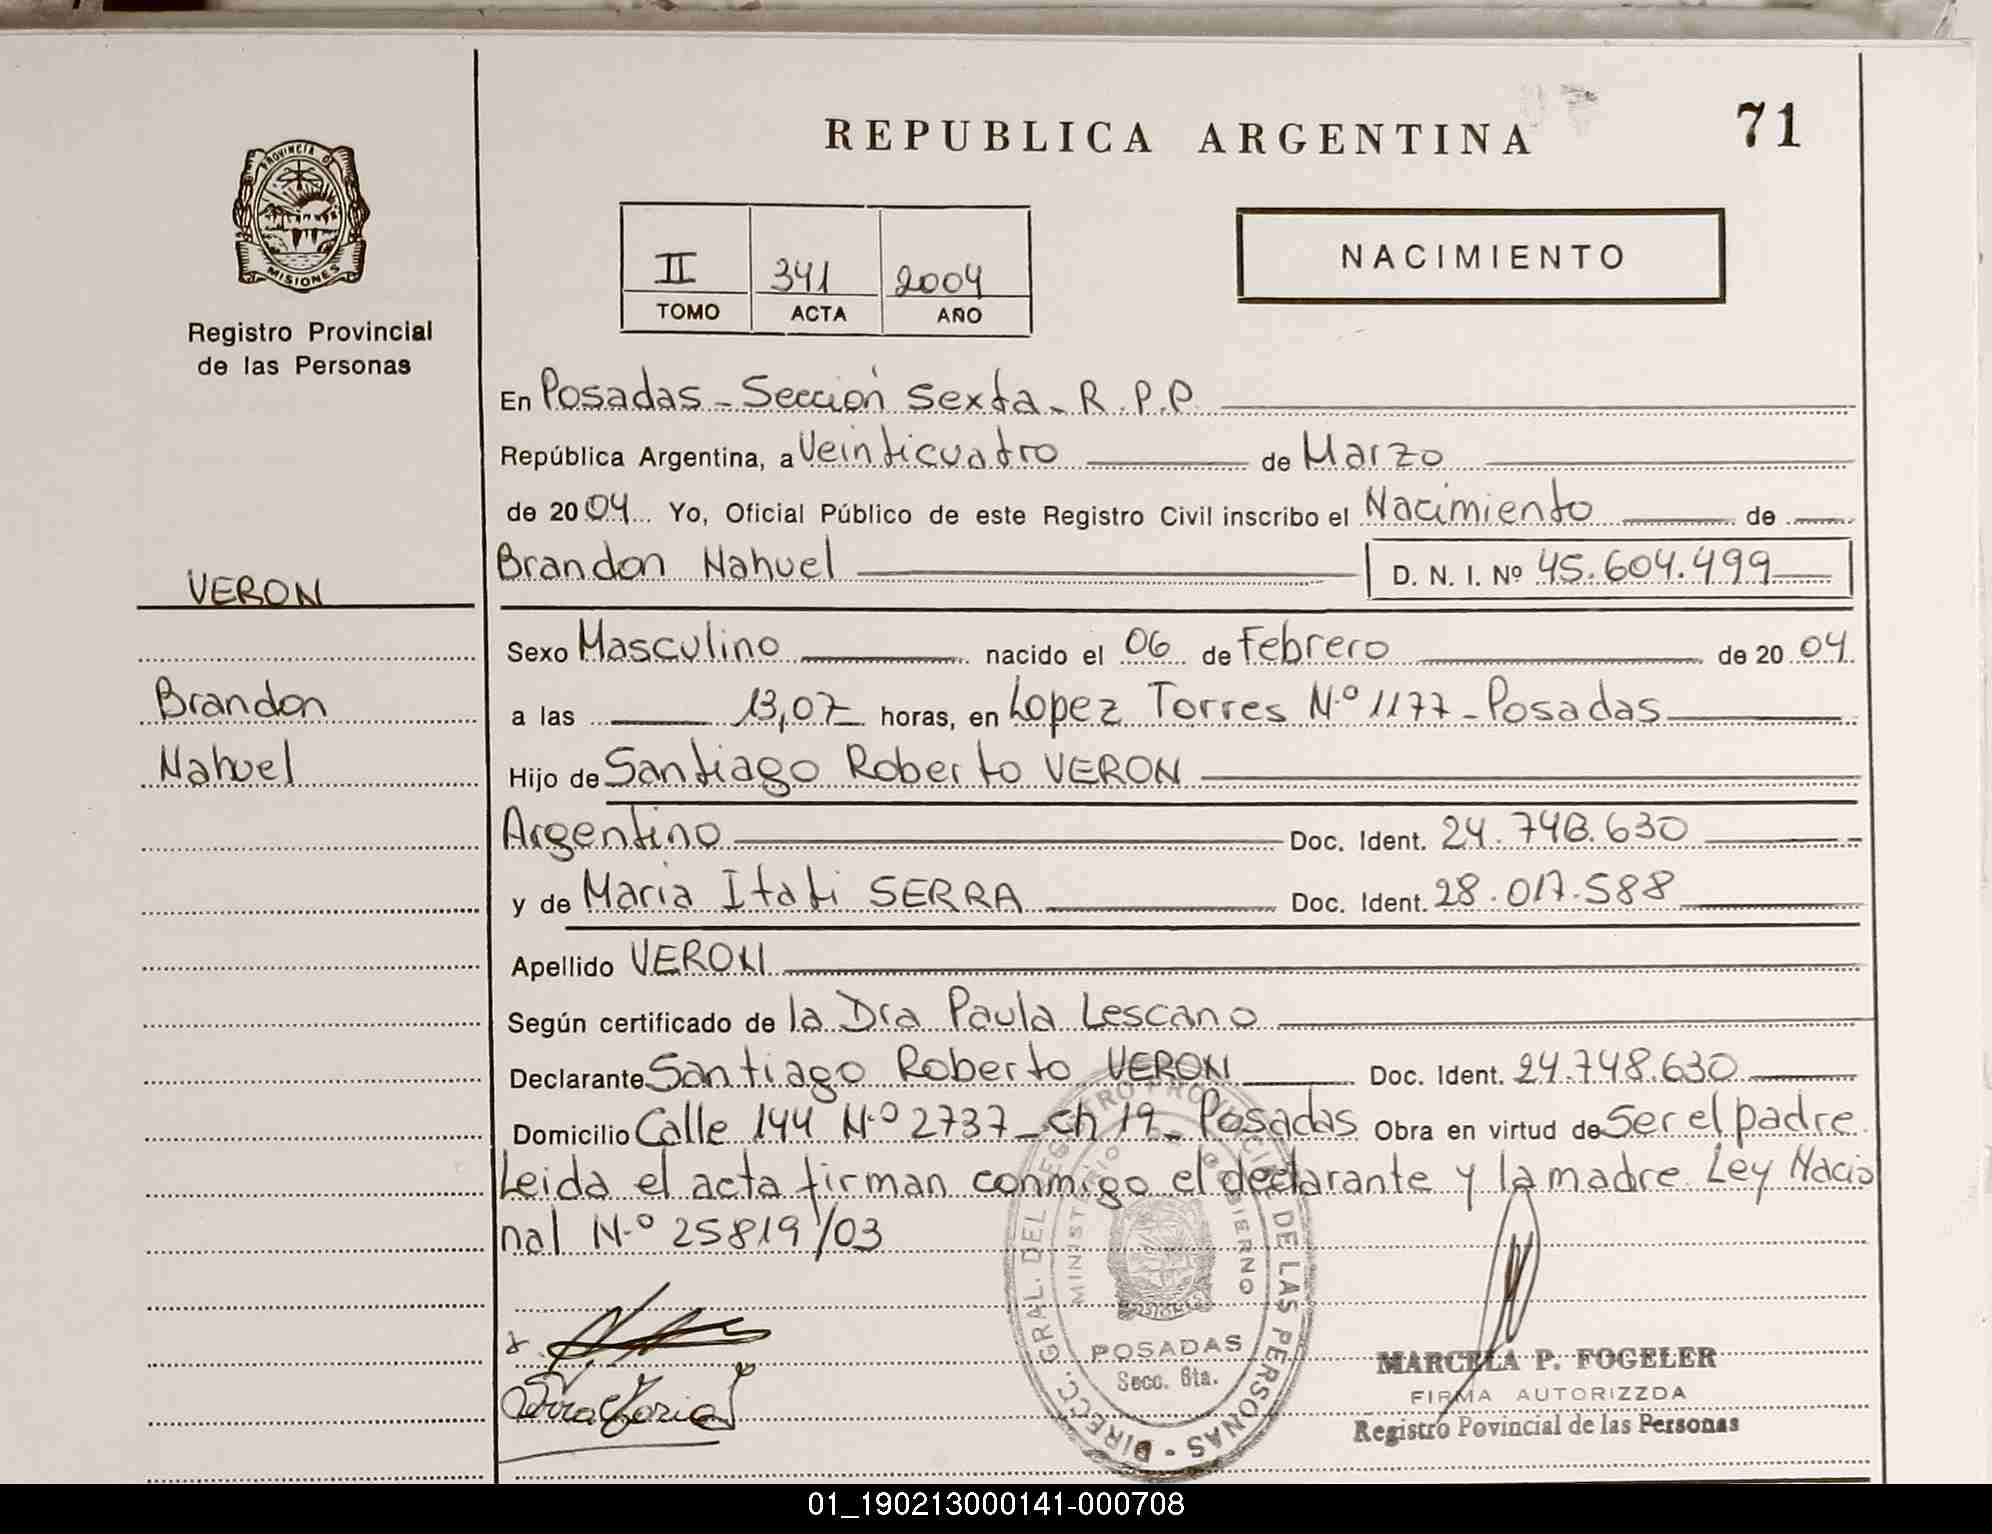 REPUBLICA ARGENTINA
71
PROVINCIA DE
MISIONES
Registro Provincial
de las Personas
II 341 2004
TOMO ACTA AÑO
NACIMIENTO
En Posadas - Sección Sexta - R.P.P.
República Argentina, a Veinticuatro de Marzo
de 2004 Yo, Oficial Público de este Registro Civil inscribo el Nacimiento de
Brandon Nahuel D. N. I. Nº 45.604.499
VERON
Sexo Masculino nacido el 06 de Febrero de 2004
Brandon
a las 13,07 horas, en Lopez Torres N.º 1177 - Posadas
Nahuel
Hijo de Santiago Roberto VERON
Argentino Doc. Ident. 24.748.630
y de Maria Itati SERRA Doc. Ident. 28.017.588
Apellido VERON
Según certificado de la Dra Paula Lescano
Declarante Santiago Roberto VERON Doc. Ident. 24.748.630
Domicilio Calle 144 N.º 2737 - ch 19 - Posadas Obra en virtud de Ser el padre.
Leida el acta firman conmigo el declarante y la madre. Ley Nacio
nal N.º 25819/03
DIRECC. GRAL. DEL REGISTRO PROVINCIAL DE LAS PERSONAS
MINISTERIO DE GOBIERNO
POSADAS
Secc. 6ta.
MARCELA P. FOGELER
FIRMA AUTORIZZDA
Registro Povincial de las Personas
01_190213000141-000708